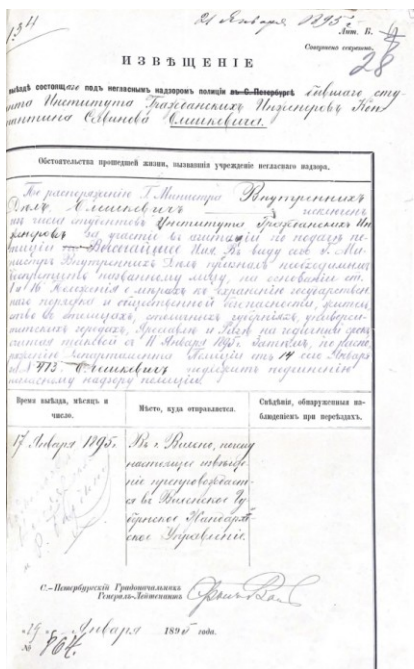 134
21 Января 1895 г.
Лит. Б.
Совершенно секретно.
28
ИЗВѢЩЕНІЕ
выѣздѣ состоящаго подъ негласнымъ надзоромъ полиціи въ С.-Петербургѣ бывшаго сту-
та Института Гражданскихъ Инженеровъ Кон-
антина Саввинова Олишкевича.
Обстоятельства прошедшей жизни, вызвавшія учрежденіе негласнаго надзора.
По распоряженію Г. Министра Внутреннихъ
Дѣлъ, Олишкевичъ исключенъ
изъ числа студентовъ Института Гражданскихъ Ин-
женеровъ за участіе въ агитаціи по подачѣ пе-
тиціи на Высочайшее Имя. Въ виду сего Г. Ми-
нистръ Внутреннихъ Дѣлъ призналъ необходимымъ
воспретить названному лицу, на основаніи ст.
1 и 16 Положенія о мѣрахъ къ охраненію государствен-
наго порядка и общественной безопасности, житель-
ство въ столицахъ, столичныхъ губерніяхъ, универси-
тетскихъ городахъ, Ярославлѣ и Ригѣ на годичный срокъ
считая таковой съ 11 Января 1895 г. Затѣмъ, по распо-
ряженію Департамента Полиціи отъ 14 сего Января
за № 473 Олишкевичъ подлежитъ подчиненію
негласному надзору полиціи.
Время выѣзда, мѣсяцъ и число.
Мѣсто, куда отправляется.
Свѣдѣнія, обнаруженныя на-
блюденіемъ при переѣздахъ.
17 Января 1895 г.
Въ г. Вильно, почему
настоящее извѣще-
ніе препровождает-
ся въ Виленское Гу-
бернское Жандарм-
ское Управленіе.
С.-Петербургскій Градоначальникъ
Генералъ-Лейтенантъ
19 Января 1895 года.
№ 864.